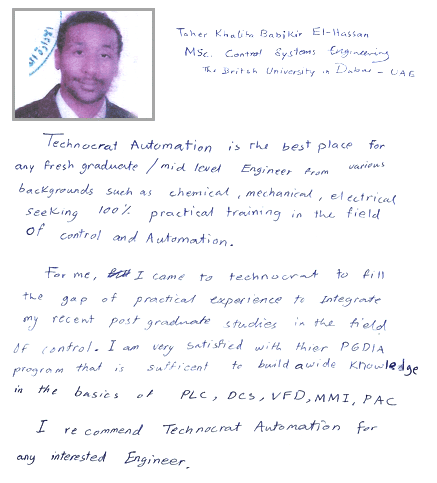 Taher Khalifa Babikir El-Hassan
MSc. Control Systems Engineering
The British University in Dubai - UAE
Technocrat Automation is the best place for
any fresh graduate / mid level Engineer from various
backgrounds such as chemical, mechanical, electrical
seeking 100% practical training in the field
of control and Automation.
For me, I came to technocrat to fill
the gap of practical experience to Integrate
my recent post graduate studies in the field
of control. I am very satisfied with thier PGDIA
program that is sufficent to build a wide knowledge
in the basics of PLC, DCS, VFD, MMI, PAC
I recommend Technocrat Automation for
any interested Engineer.